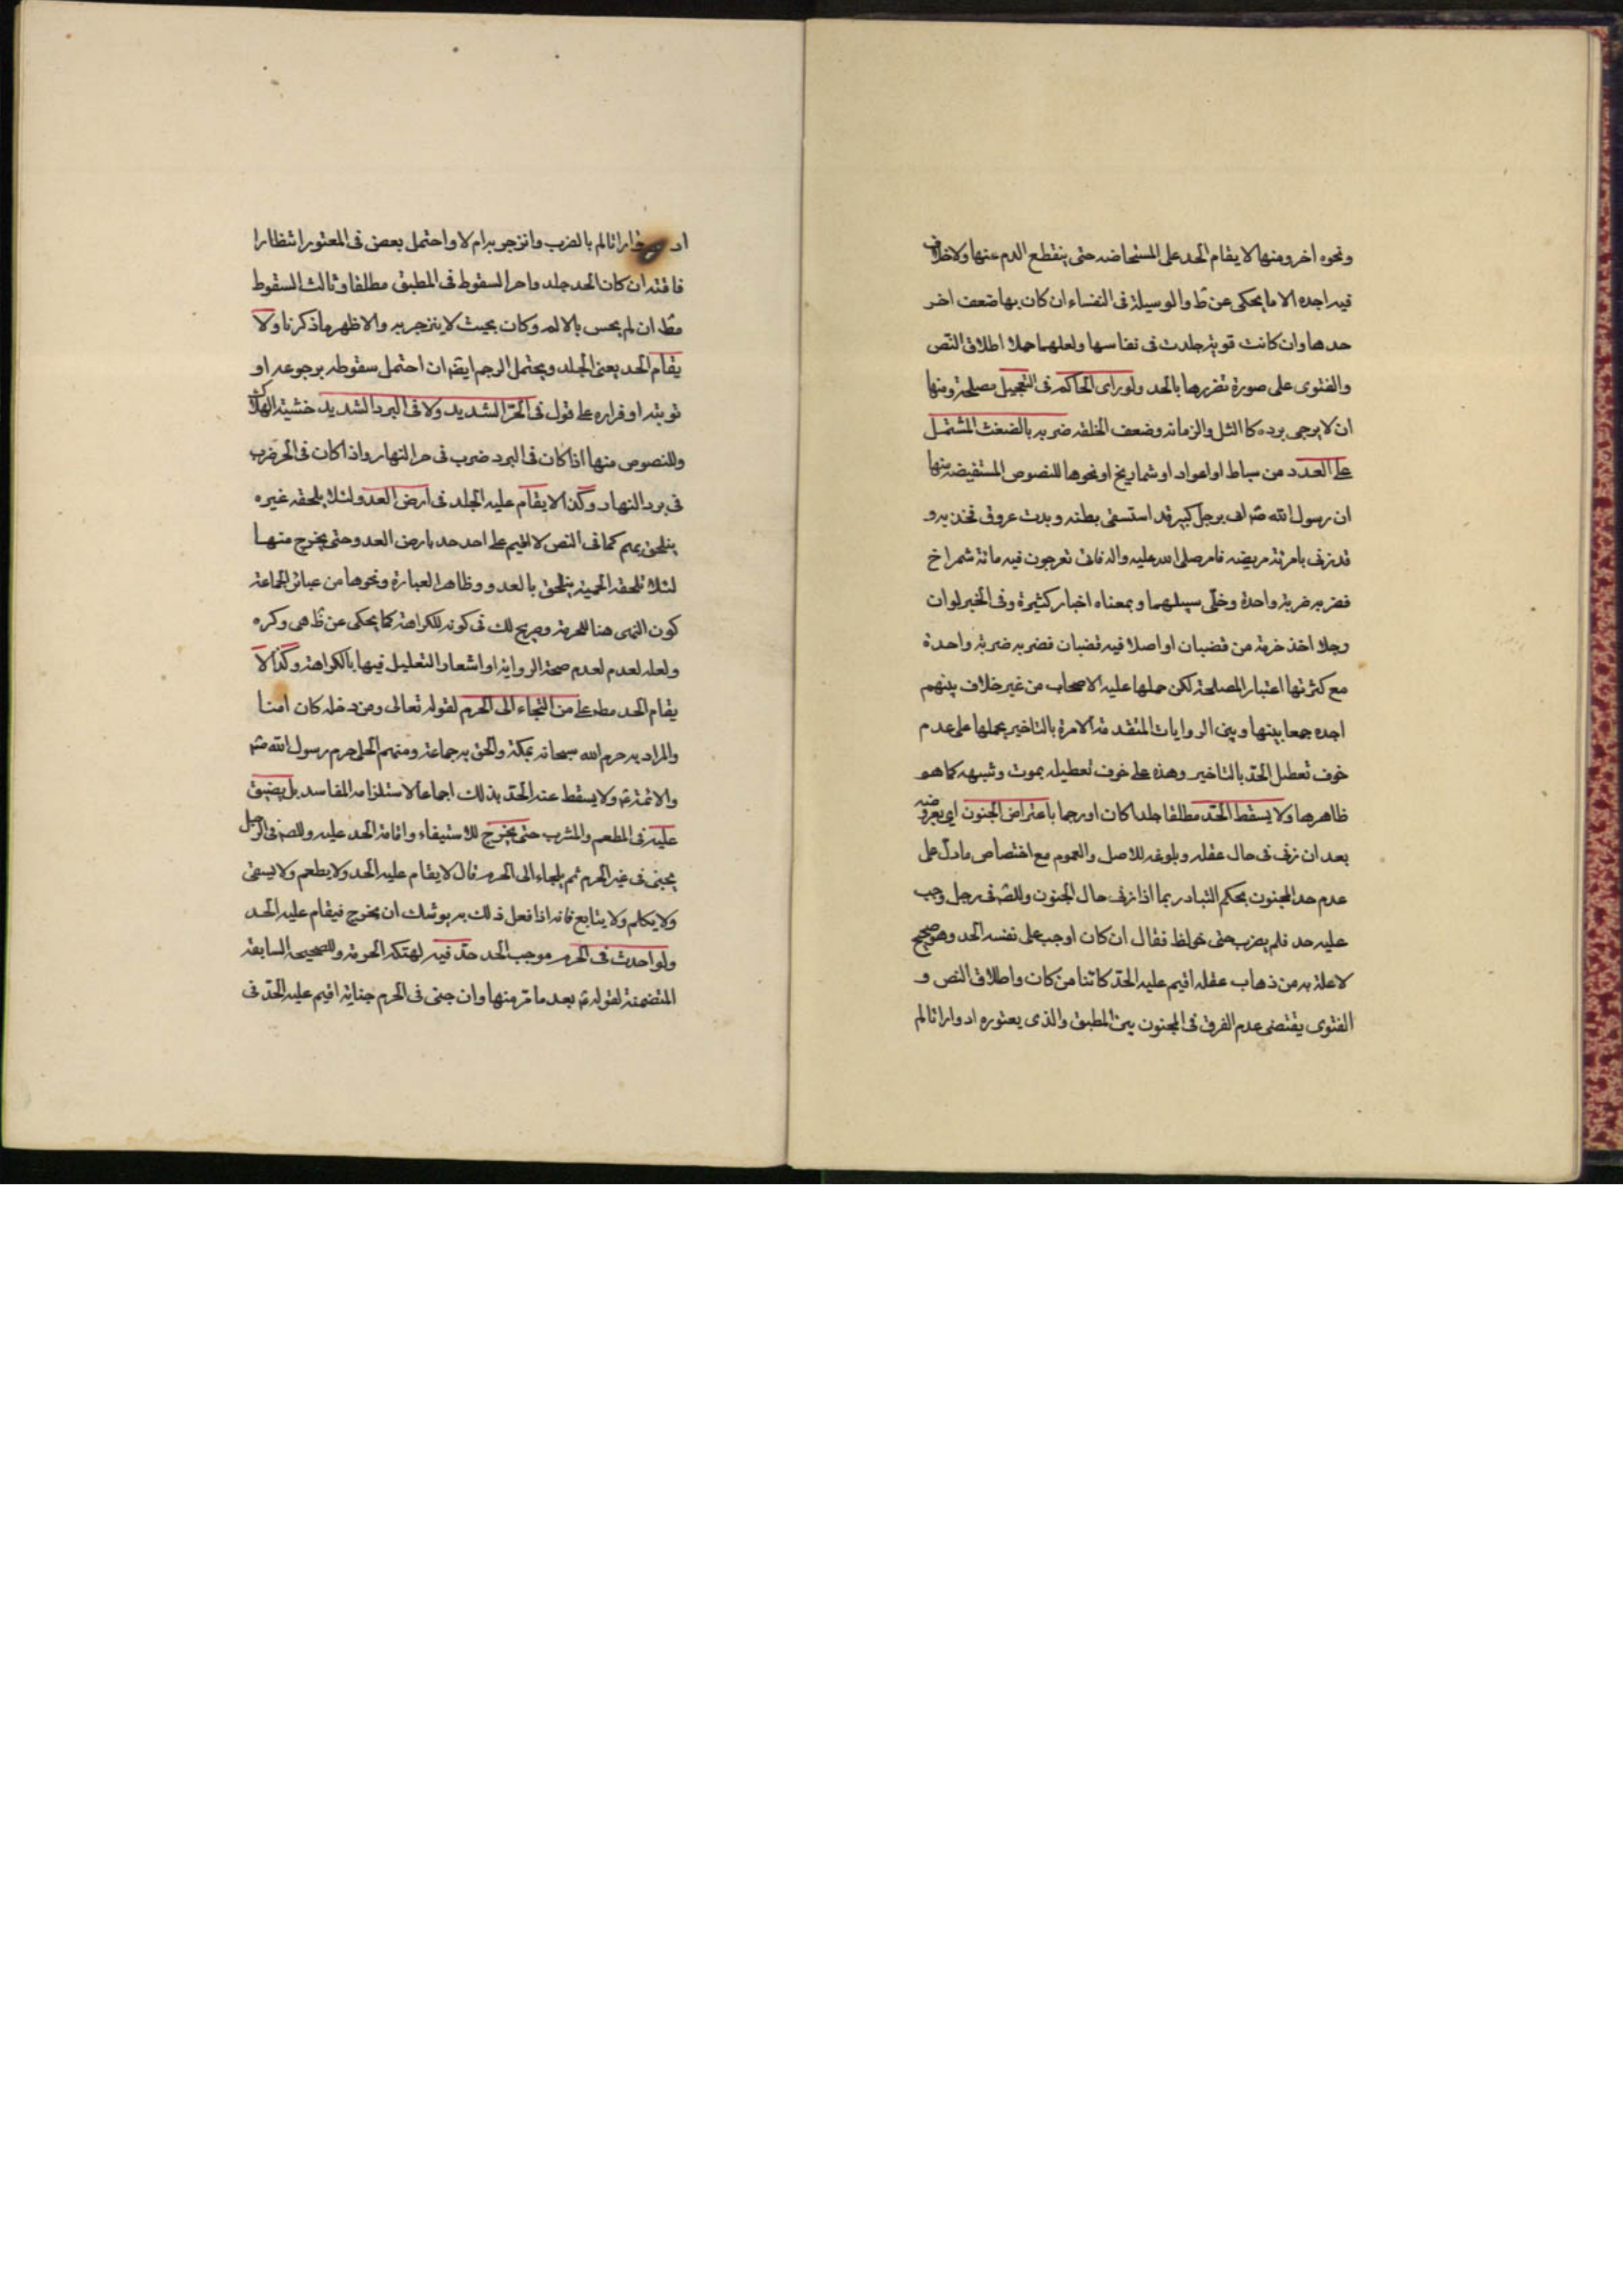 ونحوه اخر ومنها لا يقام الحد على المستحاضه حتى ينقطع الدم عنها ولا خلاف
فيه اجده الا ما يحكى عن ط والوسيلة فى النفساء ان كان بها ضعف اخر
حدها وان كانت قوية جلدت فى نفاسها ولعلهما حملا اطلاق النص
والفتوى على صورة تضررها بالحد ولو راى الحاكم فى التعجيل مصلحة ومنها
ان لا يرجى برده كا الشل والزمانه وضعف الخلقه ضربه بالضغث المشتمل
على العدد من سياط او اعواد او شماريخ او نحوها للنصوص المستفيضه منها
ان رسول الله ص اتى برجل كبير قد استسقى بطنه وبدت عروق فخذيه و
قد زنى بامرئة مريضه فامر صلى الله عليه واله فاتى بعرجون فيه مائة شمراخ
فضربه ضربة واحدة وخلى سبيلهما وبمعناه اخبار كثيرة وفى الخبر لو ان
رجلا اخذ حزمة من قضبان او اصلا فيه قضبان فضربه ضربة واحدة
مع كثرتها اعتبار المصلحة لكن حملها عليه الاصحاب من غير خلاف بينهم
اجده جمعا بينها وبين الروايات المتقدمة الامرة بالتاخير بحملها على عدم
خوف تعطيل الحد بالتاخير وهذه على خوف تعطيله بموت وشبهه كما هو
ظاهرها ولا يسقط الحد مطلقا جلدا كان او رجما باعتراض الجنون اى بعروضه
بعد ان زنى فى حال عقله وبلوغه للاصل والعموم مع اختصاص ما دل على
عدم حد المجنون بحكم التبادر بما اذا زنى حال الجنون وللص فى رجل وجب
عليه حد فلم يضرب حتى خولط فقال ان كان اوجب على نفسه الحد وهو صحيح
لا علة به من ذهاب عقله اقيم عليه الحد كائنا من كان واطلاق النص و
الفتوى يقتضى عدم الفرق فى المجنون بين المطبق والذى يعتوره ادوارا تالم
ادوارا تالم بالضرب وانزجر به ام لا واحتمل بعض فى المعتور انتظار
افاقته ان كان الحد جلد واخر السقوط فى المطبق مطلقا وثالث السقوط
مط ان لم يحس بالالم وكان بحيث لا ينزجر به والاظهر ما ذكرنا ولا
يقام الحد يعنى الجلد ويحتمل الرجم ايضا ان احتمل سقوطه برجوعه او
توبته او فراره على قول فى الحر الشديد ولا فى البرد الشديد خشية الهلاك
وللنصوص منها اذا كان فى البرد ضرب فى حر النهار واذا كان فى الحر ضرب
فى برد النهار وكذا لا يقام عليه الجلد فى ارض العدو لئلا يلحقه غيره
فيلحق بهم كما فى النص لا اقيم على احد حد بارض العدو حتى يخرج منها
لئلا تلحقه الحمية فيلحق بالعدو وظاهر العبارة ونحوها من عبائر الجماعة
كون النهى هنا للحرمة وصريح لك فى كونه للكراهة كما يحكى عن ظاهر وكره
ولعله لعدم لعدم صحة الرواية او اشعار التعليل فيها بالكراهة وكذا لا
يقام الحد مط على من التجاء الى الحرم لقوله تعالى ومن دخله كان امنا
والمراد به حرم الله سبحانه بمكة والحق به جماعة ومنهم الحلى حرم رسول الله ص
والائمة ع ولا يسقط عنه الحد بذلك اجماعا لاستلزامه المفاسد بل يضيق
عليه فى المطعم والمشرب حتى يخرج للاستيفاء واقامة الحد عليه وللص فى الرجل
يجنى فى غير الحرم ثم يلجاء الى الحرم قال لا يقام عليه الحد ولا يطعم ولا يسقى
ولا يكلم ولا يبايع فانه اذا فعل ذلك به يوشك ان يخرج فيقام عليه الحد
ولو احدث فى الحرم موجب الحد حد فيه لهتكه الحرمة وللصحيحة السابقة
المتضمنة لقوله ع بعد ما مر منها وان جنى فى الحرم جناية اقيم عليه الحد فى